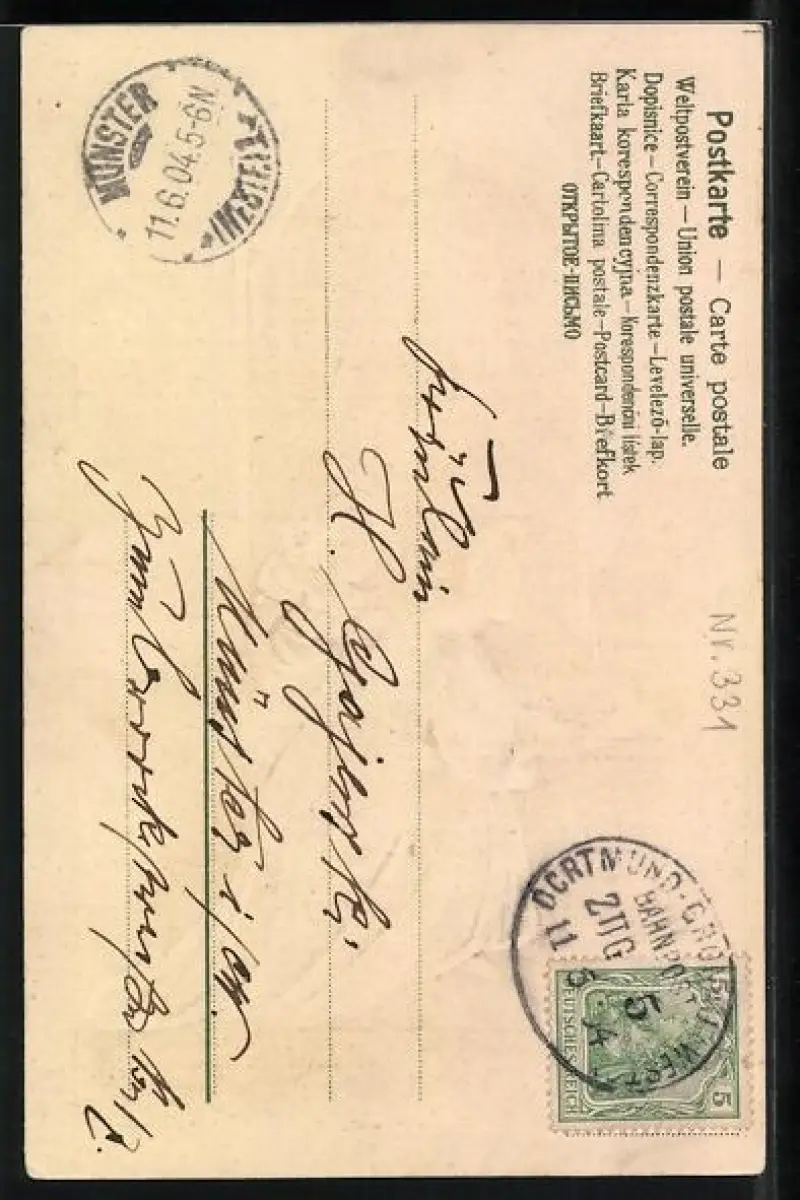 Postkarte — Carte postale
Weltpostverein — Union postale universelle.
Dopisnice – Correspondenzkarte – Levelező-lap.
Karta korespondencyjna – Korespondenční lístek
Briefkaart – Cartolina postale – Postcard – Brefkort
ОТКРЫТОЕ-ПИСЬМО
Nr. 331
MÜNSTER (WESTF.) 1
11.6.04.5-6N
BAHNPOST
ZUG 5
11
DEUTSCHES REICH
5
5
Fräulein
H.
Münster i/W.